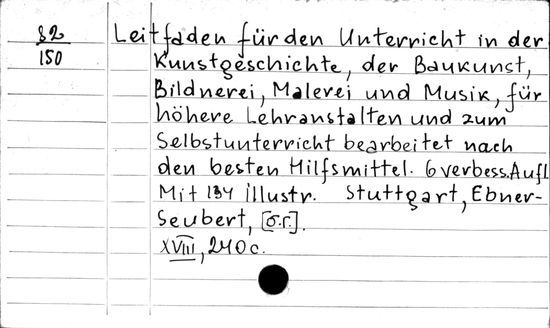 82
150
Leitfaden für den Unterricht in der
Kunstgeschichte, der Baukunst,
Bildnerei, Malerei und Musik, für
höhere Lehranstalten und zum
Selbstunterricht bearbeitet nach
den besten Hilfsmittel. 6 verbess. Aufl.
Mit 134 illustr. Stuttgart, Ebner-
Seubert, [б.г.].
XVIII, 240 с.